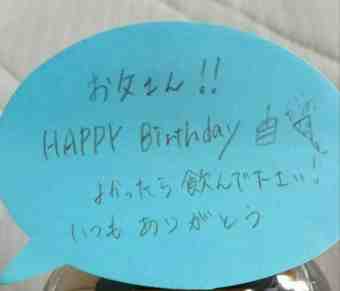 お父さん!!
HAPPY Birthday
よかったら飲んで下さい!
いつもありがとう